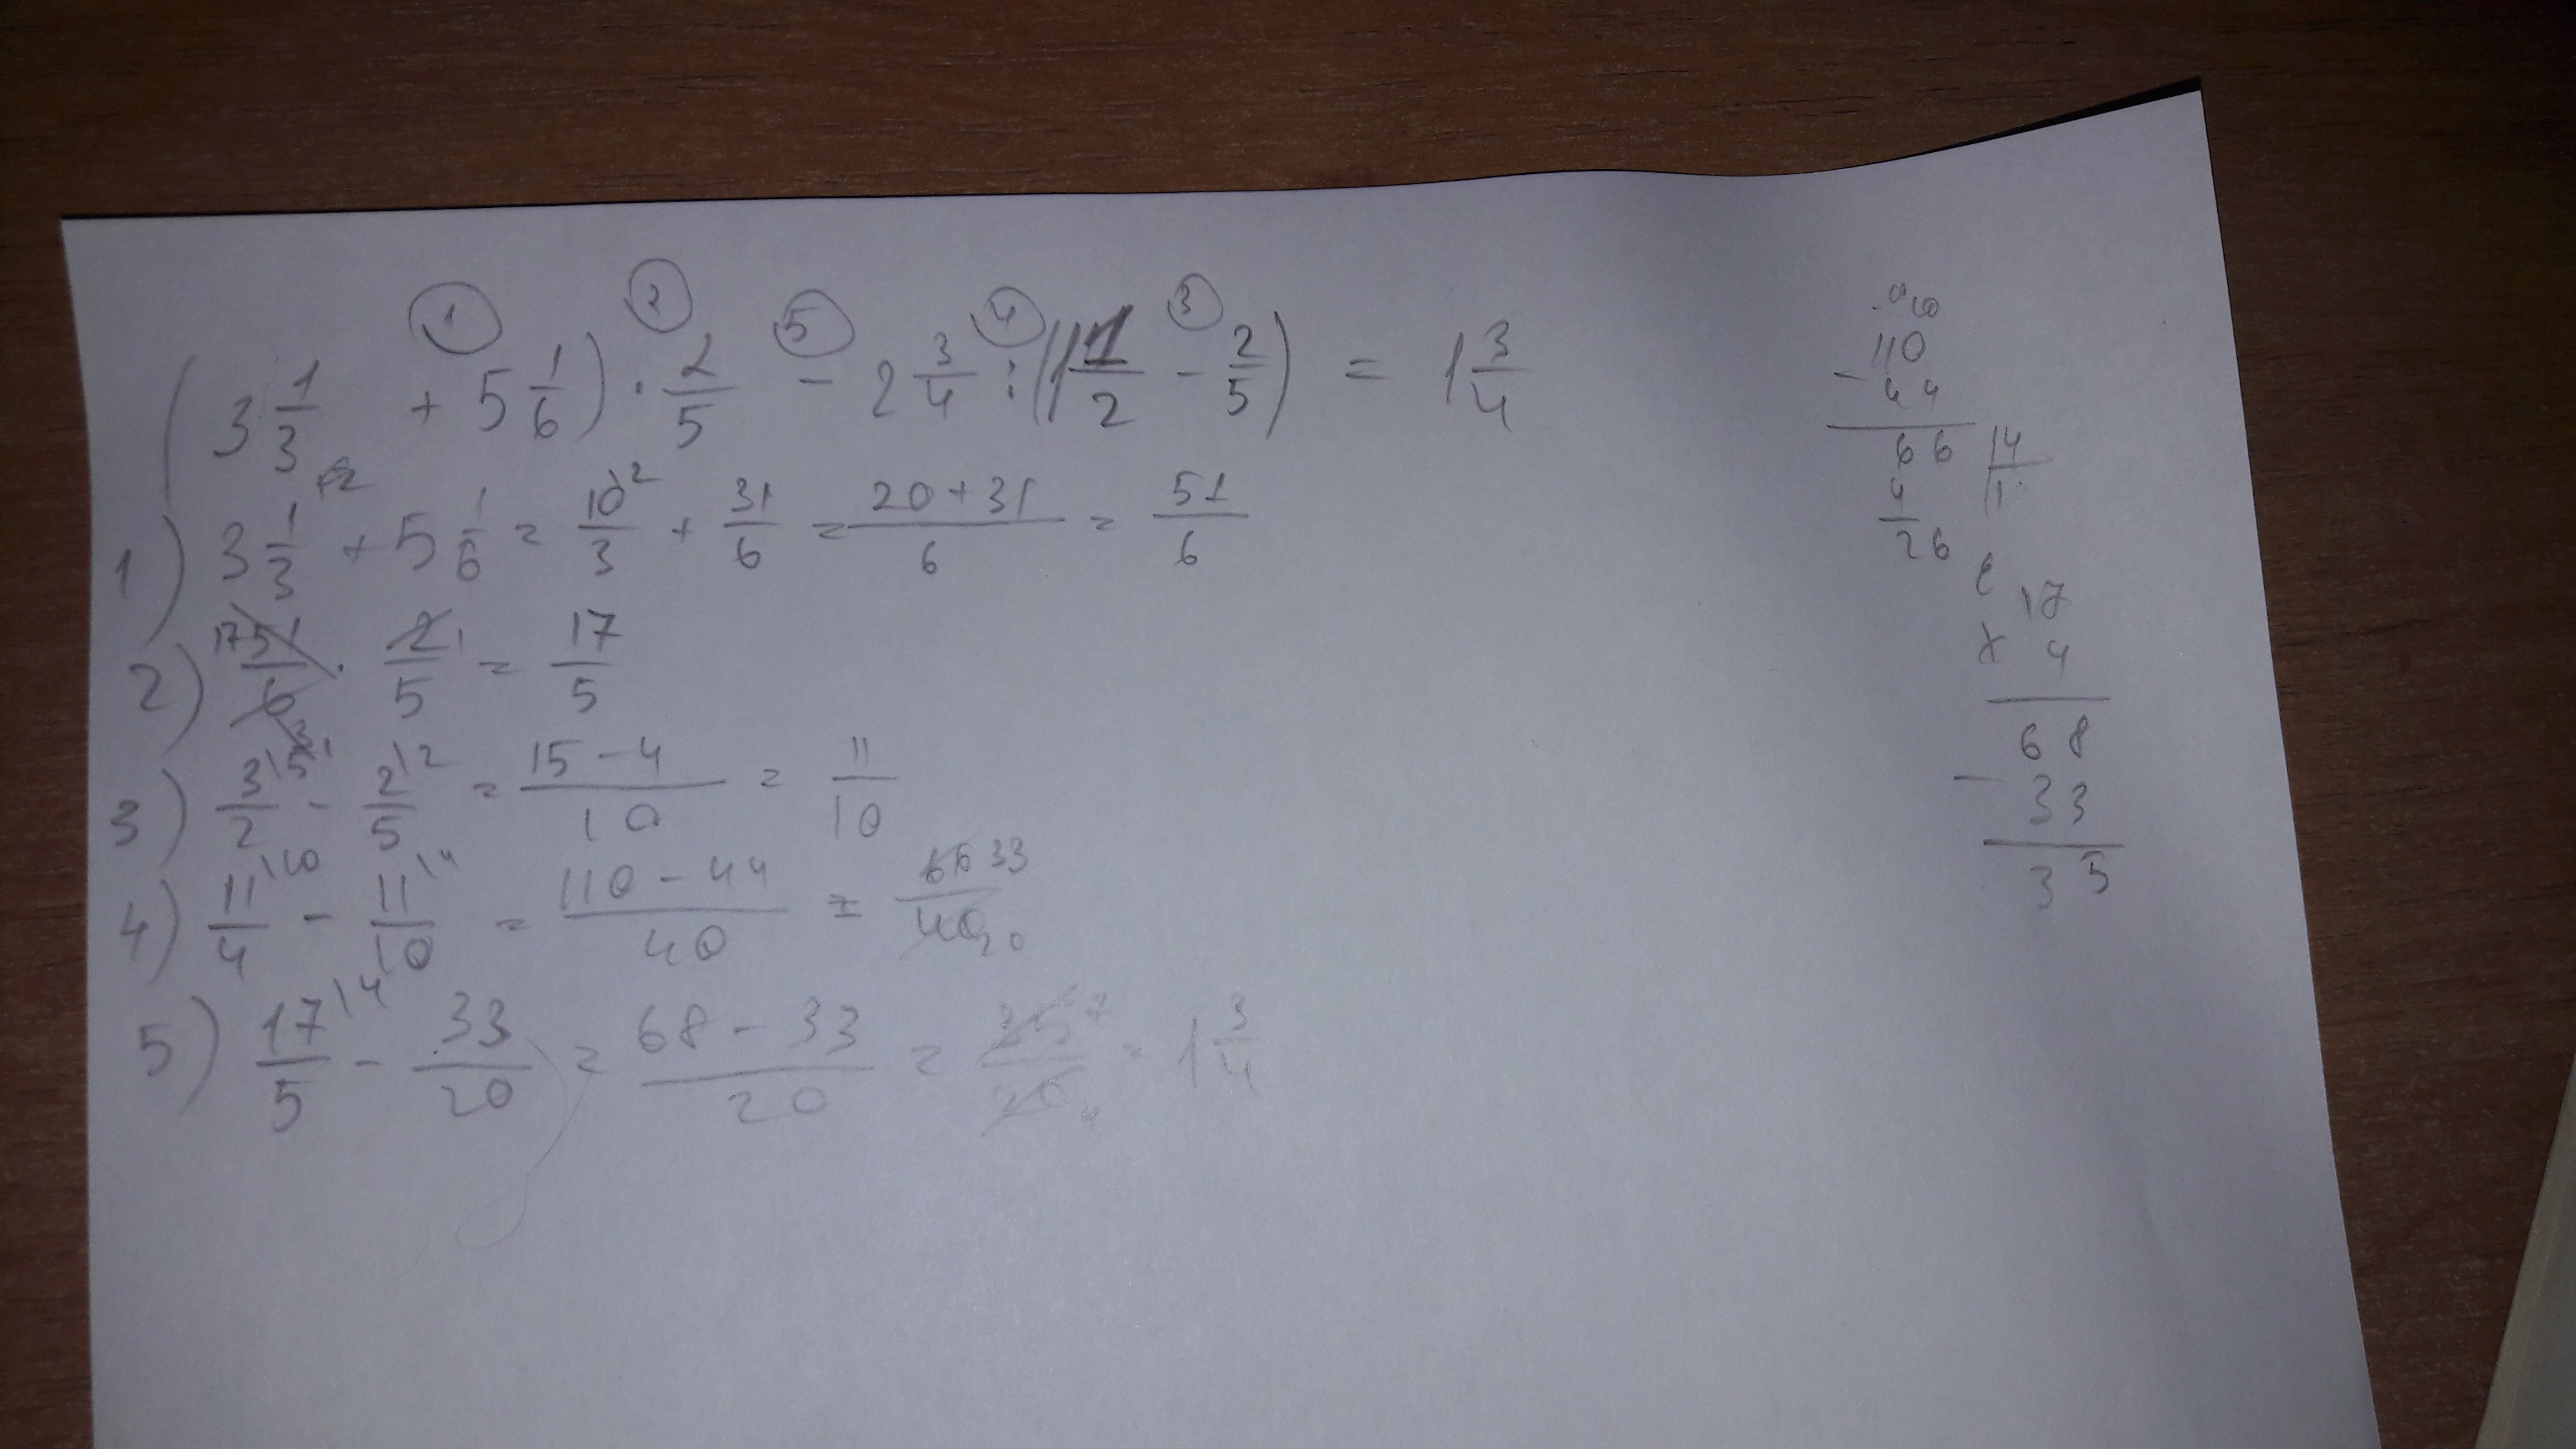 ① ② ⑤ ④ ③
(3 1/3 + 5 1/6) · 2/5 - 2 3/4 : (1 1/2 - 2/5) = 1 3/4
1) 3 1/3 + 5 1/6 = 10\2/3 + 31/6 = 20+31/6 = 51/6
2) 17 51/6 · 2 1/5 = 17/5
3) 3\5/2 - 2\2/5 = 15-4/10 = 11/10
4) 11\10/4 - 11\4/10 = 110-44/40 = 66 33/40 20
5) 17\4/5 - 33/20 = 68-33/20 = 35 7/20 4 = 1 3/4
110
- 44
66 4
4 1
26
17
x 4
68
- 33
35